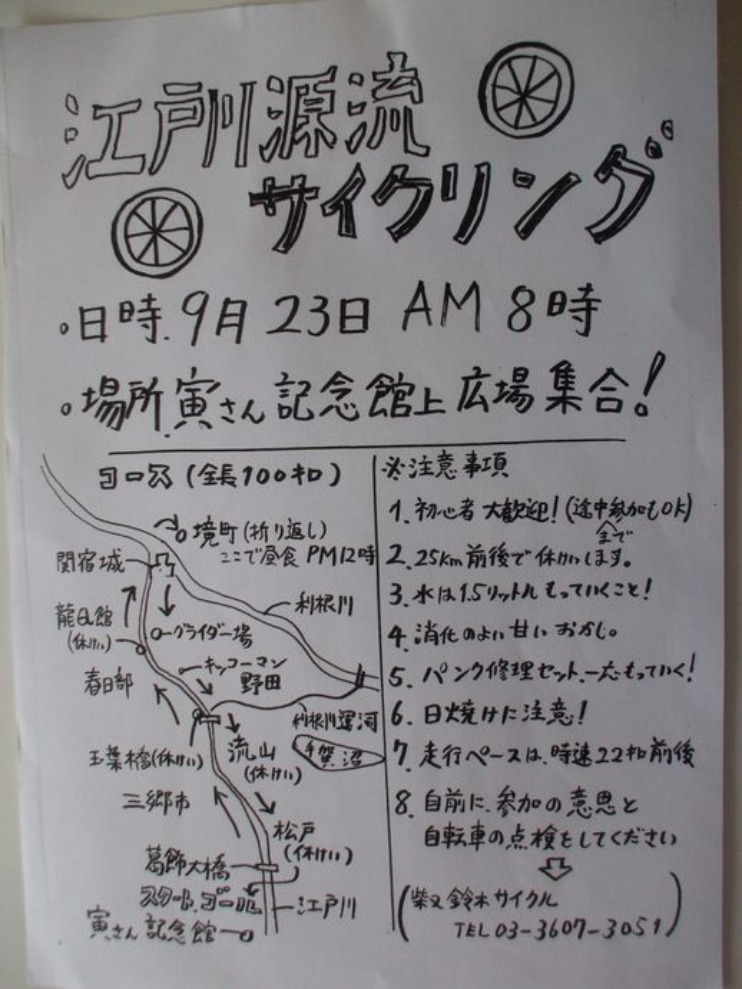 江戸川源流
サイクリング
・日時.9月23日 AM 8時
・場所.寅さん記念館上広場集合!
コース(全長100キロ)
境町(折り返し)
ここで昼食 PM12時
関宿城
利根川
グライダー場
龍Q館
(休けい)
キッコーマン
野田
春日部
利根川運河
手賀沼
玉葉橋(休けい)
流山
(休けい)
三郷市
松戸
(休けい)
葛飾大橋
スタート、ゴール
江戸川
寅さん記念館
※注意事項
1. 初心者大歓迎!(途中参加もOK)
まで
2. 25km前後で休けいします。
3. 水は1.5リットルもっていくこと!
4. 消化のよい甘いおかし。
5. パンク修理セット、一応もっていく!
6. 日焼けに注意!
7. 走行ペースは、時速22キロ前後
8. 自前に、参加の意思と
自転車の点検をしてください
(柴又鈴木サイクル
TEL 03-3607-3051)